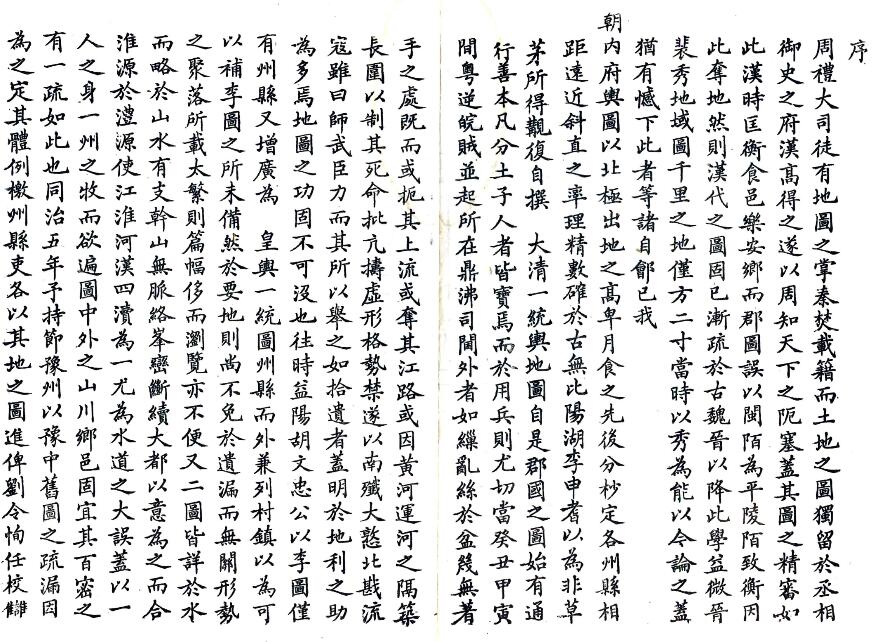 序
周禮大司徒有地圖之掌秦焚載籍而土地之圖獨留於丞相
御史之府漢髙得之遂以周知天下之阨塞蓋其圖之精審如
此漢時匡衡食邑樂安鄉而郡圖誤以閩陌為平陵陌致衡因
此奪地然則漢代之圖固已漸疏於古魏晉以降此學益微晉
裴秀地域圖千里之地僅方二寸當時以秀為能以今論之蓋
猶有憾下此者等諸自鄶已我
朝內府輿圖以北極出地之髙卑月食之先後分杪定各州縣相
距遠近斜直之率理精數確於古無比陽湖李申耆以為非草
茅所得觀復自撰　大清一統輿地圖自是郡國之圖始有通
行善本凡分土子人者皆寶焉而於用兵則尤切當癸丑甲寅
間粵逆皖賊並起所在鼎沸司閫外者如繅亂絲於盆幾無著
手之處既而或扼其上流或奪其江路或因黃河運河之隔築
長圍以制其死命批亢擣虛形格勢禁遂以南殲大憝北戡流
寇雖曰師武臣力而其所以舉之如拾遺者蓋明於地利之助
為多焉地圖之功固不可沒也往時益陽胡文忠公以李圖僅
有州縣又增廣為　皇輿一統圖州縣而外兼列村鎮以為可
以補李圖之所未備然於要地則尚不免於遺漏而無關形勢
之聚落所載太繁則篇幅侈而瀏覽亦不便又二圖皆詳於水
而略於山水有支幹山無脈絡峯巒斷續大都以意為之而合
淮源於澧源使江淮河漢四瀆為一尤為水道之大誤蓋以一
人之身一州之牧而欲遍圖中外之山川鄉邑固宜其百密之
有一疏如此也同治五年予持節豫州以豫中舊圖之疏漏因
為之定其體例檄州縣吏各以其地之圖進俾劉令恂任校讎